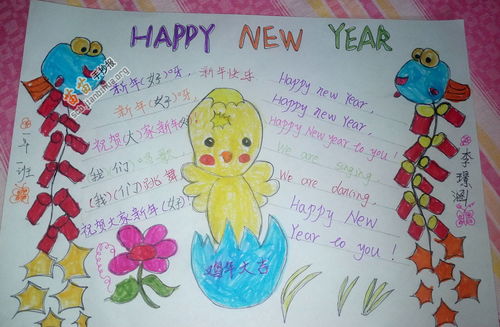 HAPPY NEW YEAR
苗苗手抄报
新年(好)呀，新年快乐
新年(好)呀，
祝贺(大)家新年好
(我)(们)唱歌，
(我)(们)跳舞，
祝贺大家新年(好)！
Happy new Year,
Happy new Year,
Happy New Year to you!
We are singing,
We are dancing,
Happy New
Year to you!
一年一班
李璟涵
鸡年大吉